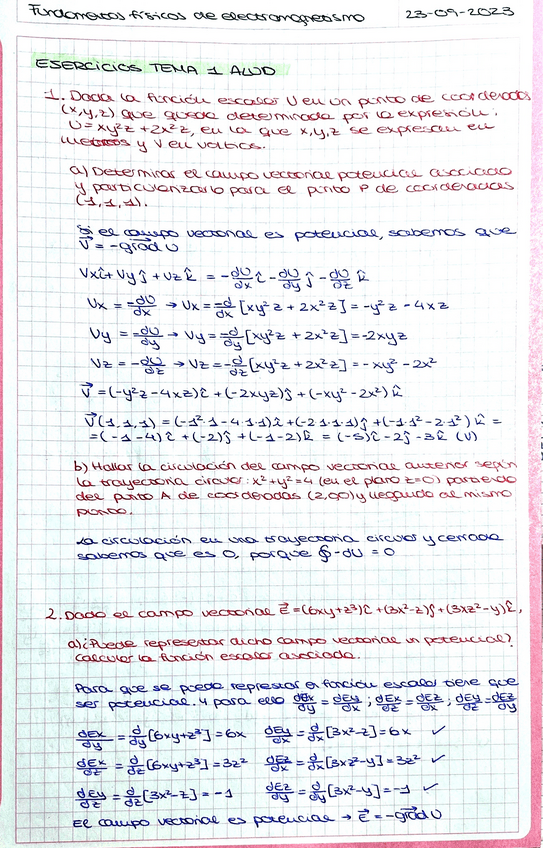 Fundamentos físicos de electromagnetismo 23-09-2023
EJERCICIOS TEMA 1 ALUD
1. Dada la función escalar U en un punto de coordenadas
(x,y,z) que queda determinada por la expresión:
U = xy²z + 2x²z, en la que x,y,z se expresan en
metros y V en voltios.
a) Determinar el campo vectorial potencial asociado
y particularizarlo para el punto P de coordenadas
(1,1,1).
Si el campo vectorial es potencial, sabemos que
V⃗ = -grad U
Vxî + Vyĵ + Vz k̂ = -dU/dx î - dU/dy ĵ - dU/dz k̂
Ux = -dU/dx → Ux = -d/dx [xy²z + 2x²z] = -y²z - 4xz
Vy = -dU/dy → Vy = -d/dy [xy²z + 2x²z] = -2xyz
Vz = -dU/dz → Vz = -d/dz [xy²z + 2x²z] = -xy² - 2x²
V⃗ = (-y²z - 4xz)î + (-2xyz)ĵ + (-xy² - 2x²) k̂
V⃗(1,1,1) = (-1²·1 - 4·1·1)î + (-2·1·1·1)ĵ + (-1·1² - 2·1²) k̂ =
= (-1 - 4) î + (-2)ĵ + (-1-2)k̂ = (-5)î - 2ĵ - 3k̂ (V)
b) Hallar la circulación del campo vectorial anterior según
la trayectoria circular: x² + y² = 4 (en el plano z=0) partiendo
del punto A de coordenadas (2,0,0) y llegando al mismo
punto.
La circulación en una trayectoria circular y cerrada
sabemos que es 0, porque ∮-dU = 0
2. Dado el campo vectorial E⃗ = (6xy+z³)î + (3x²-z)ĵ + (3xz²-y)k̂,
a) ¿Puede representar dicho campo vectorial un potencial?
Calcular la función escalar asociada.
Para que se puede represtar en función escalar tiene que
ser potencial. Y para ello dEx/dy = dEy/dx ; dEx/dz = dEz/dx ; dEy/dz = dEz/dy
dEx/dy = d/dy [6xy+z³] = 6x dEy/dx = d/dx [3x²-z] = 6x ✓
dEx/dz = d/dz [6xy+z³] = 3z² dEz/dx = d/dx [3xz²-y] = 3z² ✓
dEy/dz = d/dz [3x²-z] = -1 dEz/dy = d/dy [3x²-y] = -1 ✓
El campo vectorial es potencial → E⃗ = -grad U